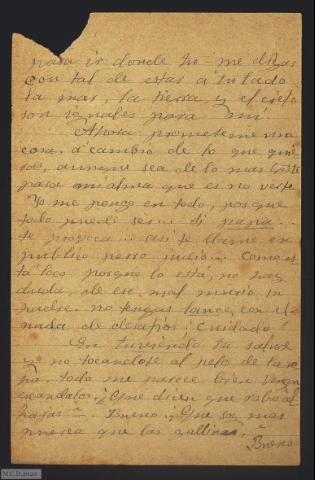 para ir donde tu me digas
con tal de estar á tu lado
la mar, la tierra y el cielo
son iguales para mi
Ahora prometeme una
cosa, á cambio de lo que quie
ras, aunque sea de lo mas triste
para mi alma que es no verte
Yo me pongo en todo, porque
todo puede ser... si papá...
te provoca... asi te llame en
publico perro judio... como es
tá loco porque lo está, no hay
duda, de ese mal murió su
padre. no tengas lance, con él
nada de desafios; cuidado!
En tu salud
y no tocandote al pelo de la ro
pa, todo me parece bien vengan
escandalos. Que dicen que robo al
hajas — Bueno. ¿Que soy mas
que las gallinas? —
Bueno
M.C.D. 2020